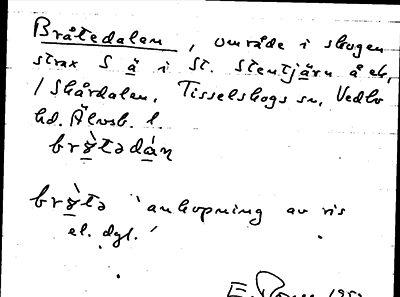 Bråtedalen, område i skogen
strax S å i St. Stentjärn å ek,
/ Skårdalen, Tisselskogs sn, Vedbo
hd. Älvsb. l.
brɤ̀tədán
brɤ̀tə 'anhopning av ris
el. dgl.'
E.